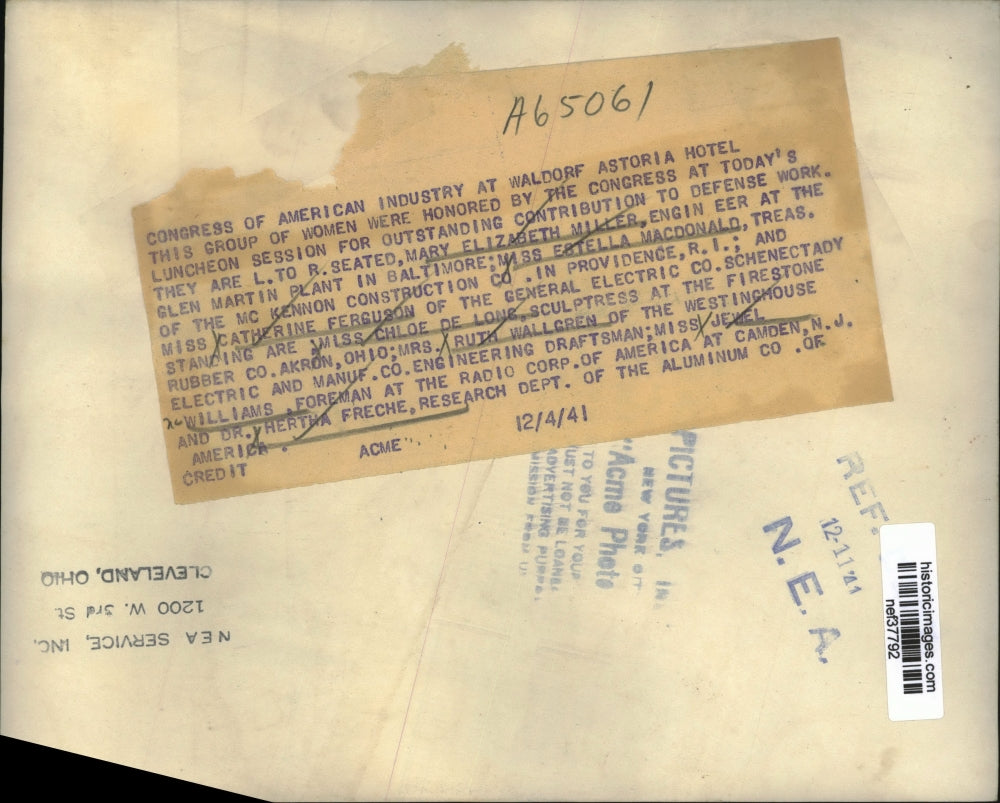 A65061
CONGRESS OF AMERICAN INDUSTRY AT WALDORF ASTORIA HOTEL
THIS GROUP OF WOMEN WERE HONORED BY THE CONGRESS AT TODAY'S
LUNCHEON SESSION FOR OUTSTANDING CONTRIBUTION TO DEFENSE WORK.
THEY ARE L.TO R.SEATED,MARY ELIZABETH MILLER,ENGIN EER AT THE
GLEN MARTIN PLANT IN BALTIMORE;MISS ESTELLA MACDONALD,TREAS.
OF THE MC KENNON CONSTRUCTION CO .IN PROVIDENCE,R.I.; AND
MISS CATHERINE FERGUSON OF THE GENERAL ELECTRIC CO.SCHENECTADY
STANDING ARE MISS CHLOE DE LONG,SCULPTRESS AT THE FIRESTONE
RUBBER CO.AKRON,OHIO;MRS. RUTH WALLGREN OF THE WESTINGHOUSE
ELECTRIC AND MANUF.CO.ENGINEERING DRAFTSMAN;MISS JEWEL
WILLIAMS ,FOREMAN AT THE RADIO CORP.OF AMERICA AT CAMDEN,N.J.
AND DR. HERTHA FRECHE,RESEARCH DEPT. OF THE ALUMINUM CO .OF
AMERICA .
CREDIT ACME 12/4/41
PICTURES,
NEW YORK
"Acme Photo
TO YOU FOR YOUR
UST NOT BE
ADVERTISING
REF.
12-11'41
N. E. A.
historicimages.com
nef37792
NEA SERVICE, INC.
1200 W. 3rd St
CLEVELAND, OHIO